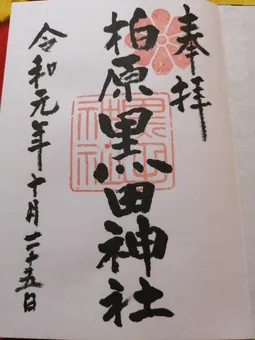 奉拝
柏原黒田神社
令和元年十月二十五日